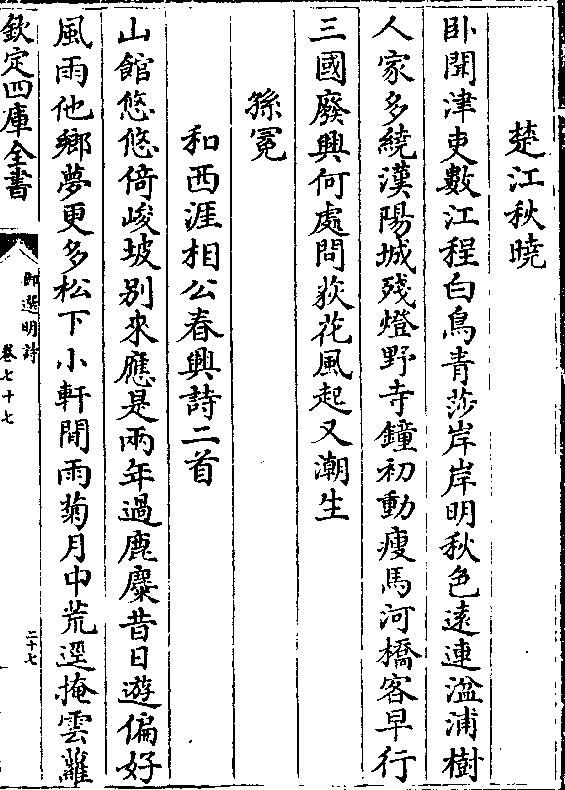 楚江秋曉
卧聞津吏數江程白鳥青莎岸岸明秋色遠連湓浦樹
人家多繞漢陽城殘燈野寺鐘初動瘦馬河橋客早行
三國廢興何處問荻花風起又潮生
孫冕
和西涯相公春興詩二首
山館悠悠倚峻坡別來應是兩年過鹿麋昔日遊偏好
風雨他鄉夢更多松下小軒閒雨菊月中荒逕掩雲蘿
欽定四庫全書
御選明詩
卷七十七
二十七